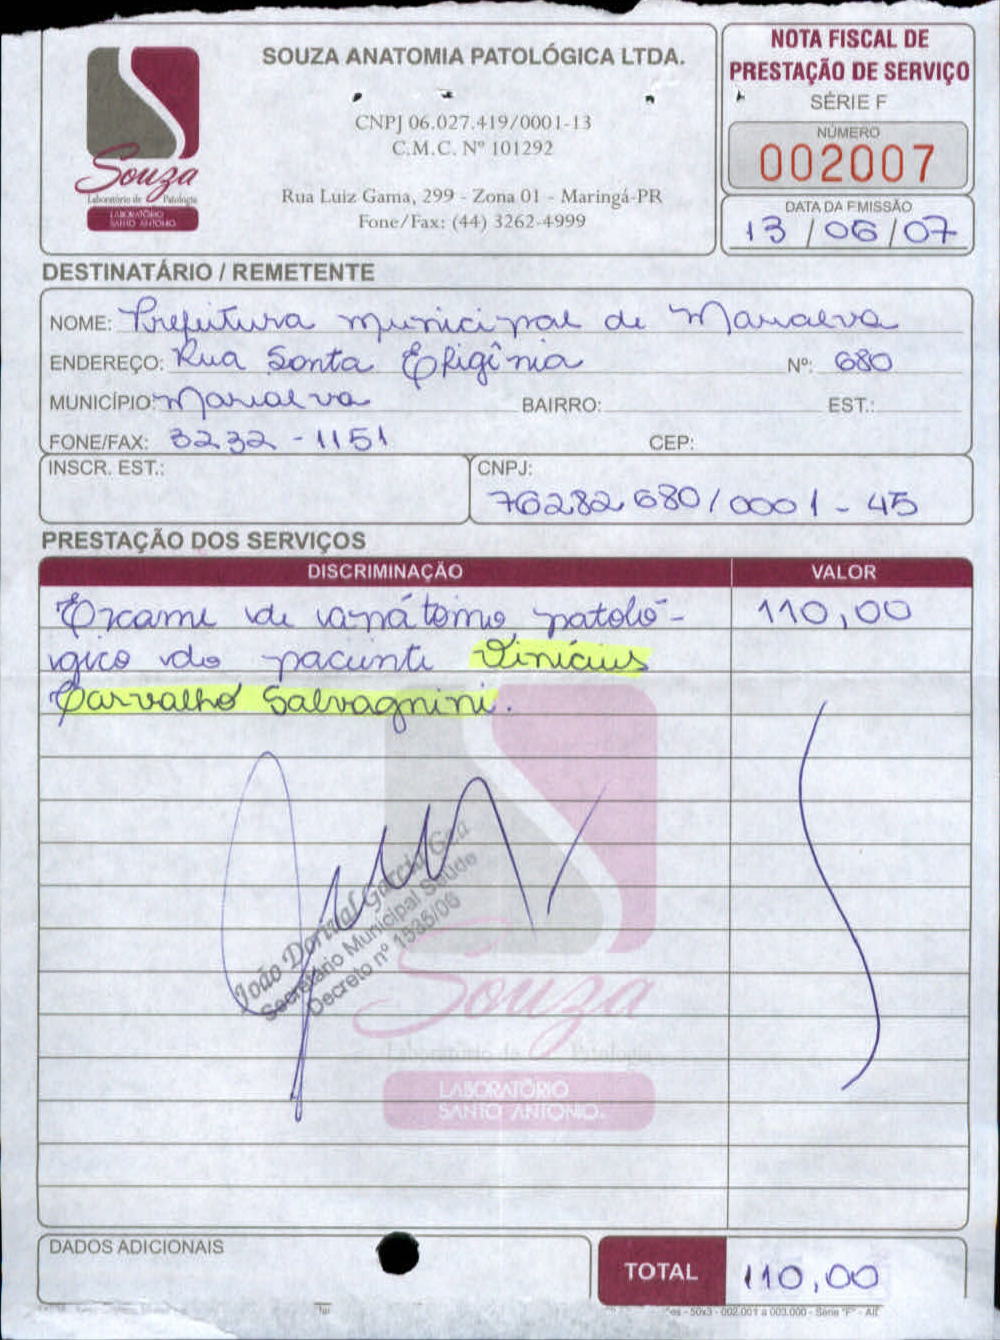 SOUZA ANATOMIA PATOLÓGICA LTDA.
CNPJ 06.027.419/0001-13
C.M.C. Nº 101292
Rua Luiz Gama, 299 - Zona 01 - Maringá-PR
Fone/Fax: (44) 3262-4999
Souza
Laboratório de Patologia
LABORATÓRIO
SANTO ANTONIO
NOTA FISCAL DE
PRESTAÇÃO DE SERVIÇO
SÉRIE F
NÚMERO
002007
DATA DA EMISSÃO
13/06/07
DESTINATÁRIO / REMETENTE
NOME: Prefeitura municipal de Marialva
ENDEREÇO: Rua Santa Efigênia Nº: 680
MUNICÍPIO: Marialva BAIRRO: EST.:
FONE/FAX: 3232-1151 CEP:
INSCR. EST.:
CNPJ:
76282680/0001-45
PRESTAÇÃO DOS SERVIÇOS
DISCRIMINAÇÃO VALOR
Exame de anátomo patoló- 110,00
gico do paciente Vinícius
Carvalho Salvagnini.
João Dorival Garcia
Secretário Municipal Saúde
Decreto nº 1535/06
Souza
Laboratório de Patologia
LABORATÓRIO
SANTO ANTONIO.
DADOS ADICIONAIS
TOTAL 110,00
50x3 - 002.001 a 003.000 - Série "F"